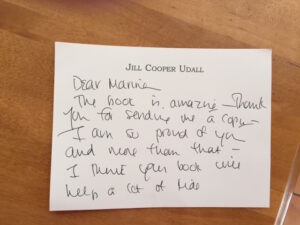 JILL COOPER UDALL
Dear Marina
The book is amazing – Thank
you for sending me a copy –
I am so proud of you
and more than that –
I think your book will
help a lot of kids